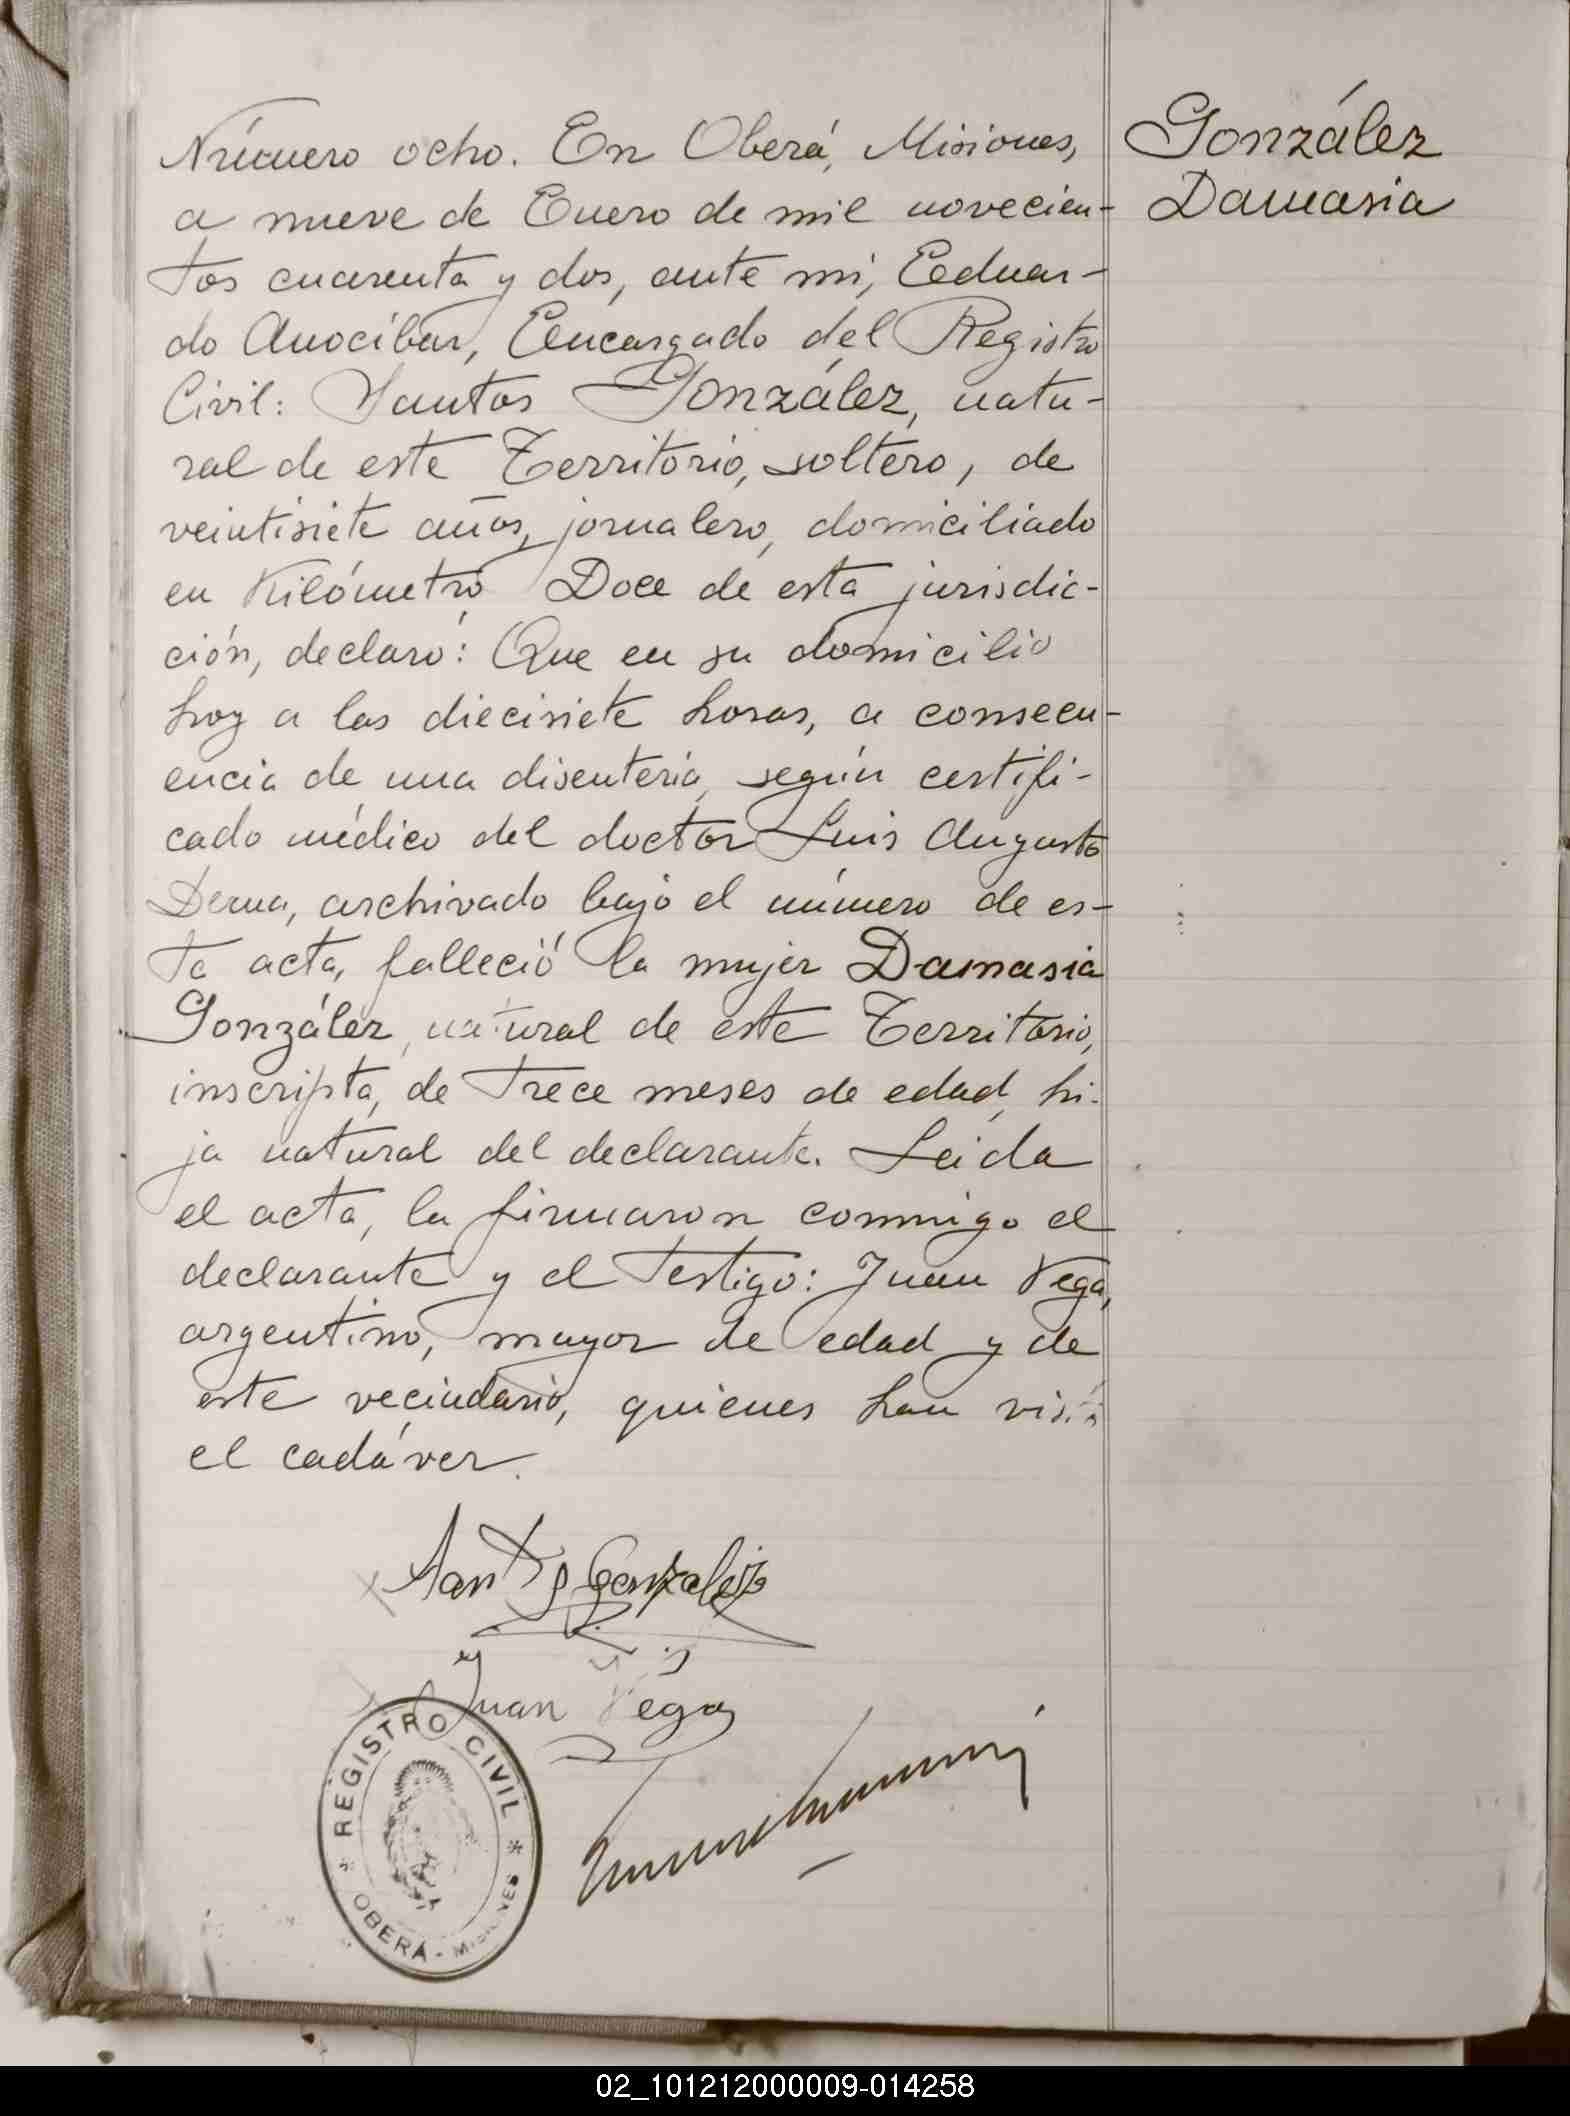 González
Damasia
Número ocho. En Oberá, Misiones,
a nueve de Enero de mil novecien-
tos cuarenta y dos, ante mi, Eduar-
do Anocíbar, Encargado del Registro
Civil: Santos González, natu-
ral de este Territorio, soltero, de
veintisiete años, jornalero, domiciliado
en Kilómetro Doce de esta jurisdic-
ción, declaró: Que en su domicilio
hoy a las diecisiete horas, a consecu-
encia de una disentería, según certifi-
cado médico del doctor Luis Augusto
Derna, archivado bajo el número de es-
ta acta, falleció la mujer Damasia
González, natural de este Territorio,
inscripta, de trece meses de edad, hi-
ja natural del declarante. Leída
el acta, la firmaron conmigo el
declarante y el testigo: Juan Vega,
argentino, mayor de edad y de
este vecindario, quienes han visto
el cadáver.
Santos Gonzalez
Juan Vega
REGISTRO CIVIL
* OBERÁ - MISIONES *
02_101212000009-014258